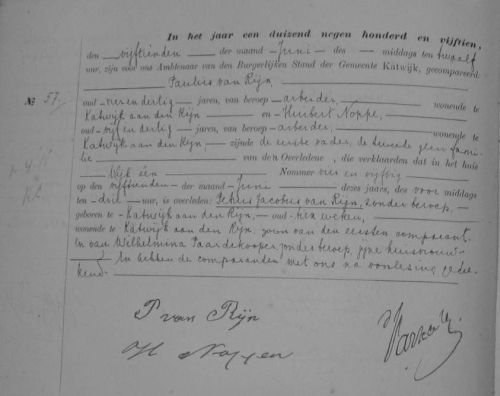 In het jaar een duizend negen honderd en vijftien,
den vijftienden der maand Juni des middags ten twaalf
ure, zijn voor ons Ambtenaar van den Burgerlijken Stand der Gemeente Katwijk, gecompareerd:
Paulus van Rijn,
Nº 57. oud vier en dertig jaren, van beroep arbeider, wonende te
Katwijk aan den Rijn en Huibert Noppe,
oud vijf en dertig jaren, van beroep arbeider, wonende te
Katwijk aan den Rijn, zijnde de eerste vader, de tweede geen fami-
lie van den Overledene, die verklaarden dat in het huis
Wijk één Nummer vier en vijftig
op den vijftienden der maand Juni dezes jaars, des voor middags
ten drie ure, is overleden: Petrus Jacobus van Rijn, zonder beroep,
geboren te Katwijk aan den Rijn, oud zes weken,
wonende te Katwijk aan den Rijn, zoon van den eersten comparant
en van Wilhelmina Paardekooper, zonder beroep, zijne huisvrouw
En hebben de comparanten met ons na voorlezing getee-
kend.
P van Rijn
H Noppen